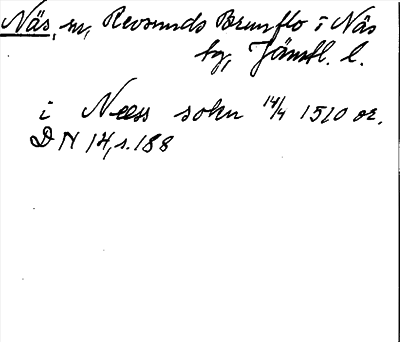 Näs, sn, Revsunds Brunflo i Näs
tg, Jämtl. l.
i Neess sokn 14/4 1510 or.
DN 14, s. 188